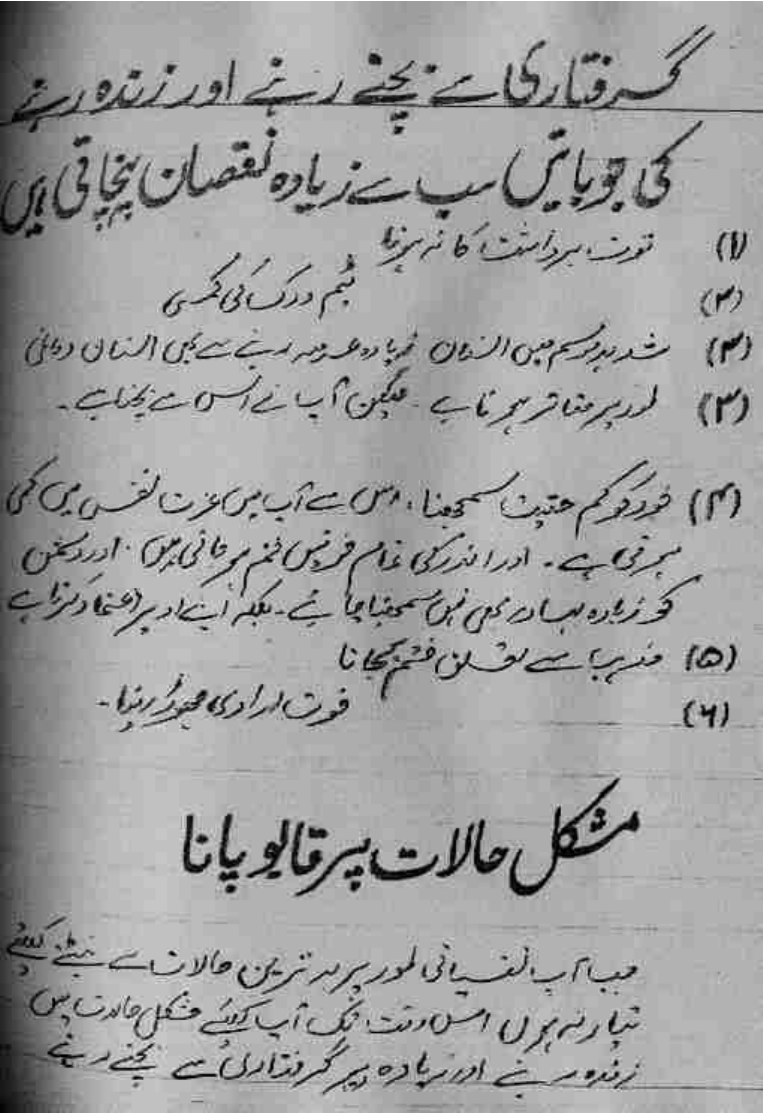 گرفتاری سے بچنے رہنے اور زندہ رہنے
کی جو باتیں سب سے زیادہ نقصان پہنچاتی ہیں
(۱) قوت برداشت کا نہ ہونا
(۲) ٹیم ورک کی کمی
(۳) شدید موسم میں انسان زیادہ عرصہ رہنے سے بھی انسان دماغی
(۳) طور پر متاثر ہوتا ہے۔ لیکن آپ نے اس سے بچنا ہے۔
(۴) خود کو کم حقیت سمجھنا، اس سے آپ میں عزت نفس میں کمی
ہوتی ہے۔ اور اندر کی تمام ختم ہو جاتی ہیں۔ اور دشمن
کو زیادہ بہادر بھی نہیں سمجھنا چاہئے۔ بلکہ اپنے اوپر اعتماد کرنا ہے
(۵) مذہب سے تعلق ختم کجانا
(۶) قوت ارادی چھوڑ دینا۔
مشکل حالات پر قابو پانا
جب آپ نفسیاتی طور پر بدترین حالات سے نبٹنے کیلئے
تیار نہ ہوں اس وقت تک آپ کیلئے مشکل حالات میں
زندہ رہنے اور زیادہ دیر گرفتاری سے بچنے رہنے